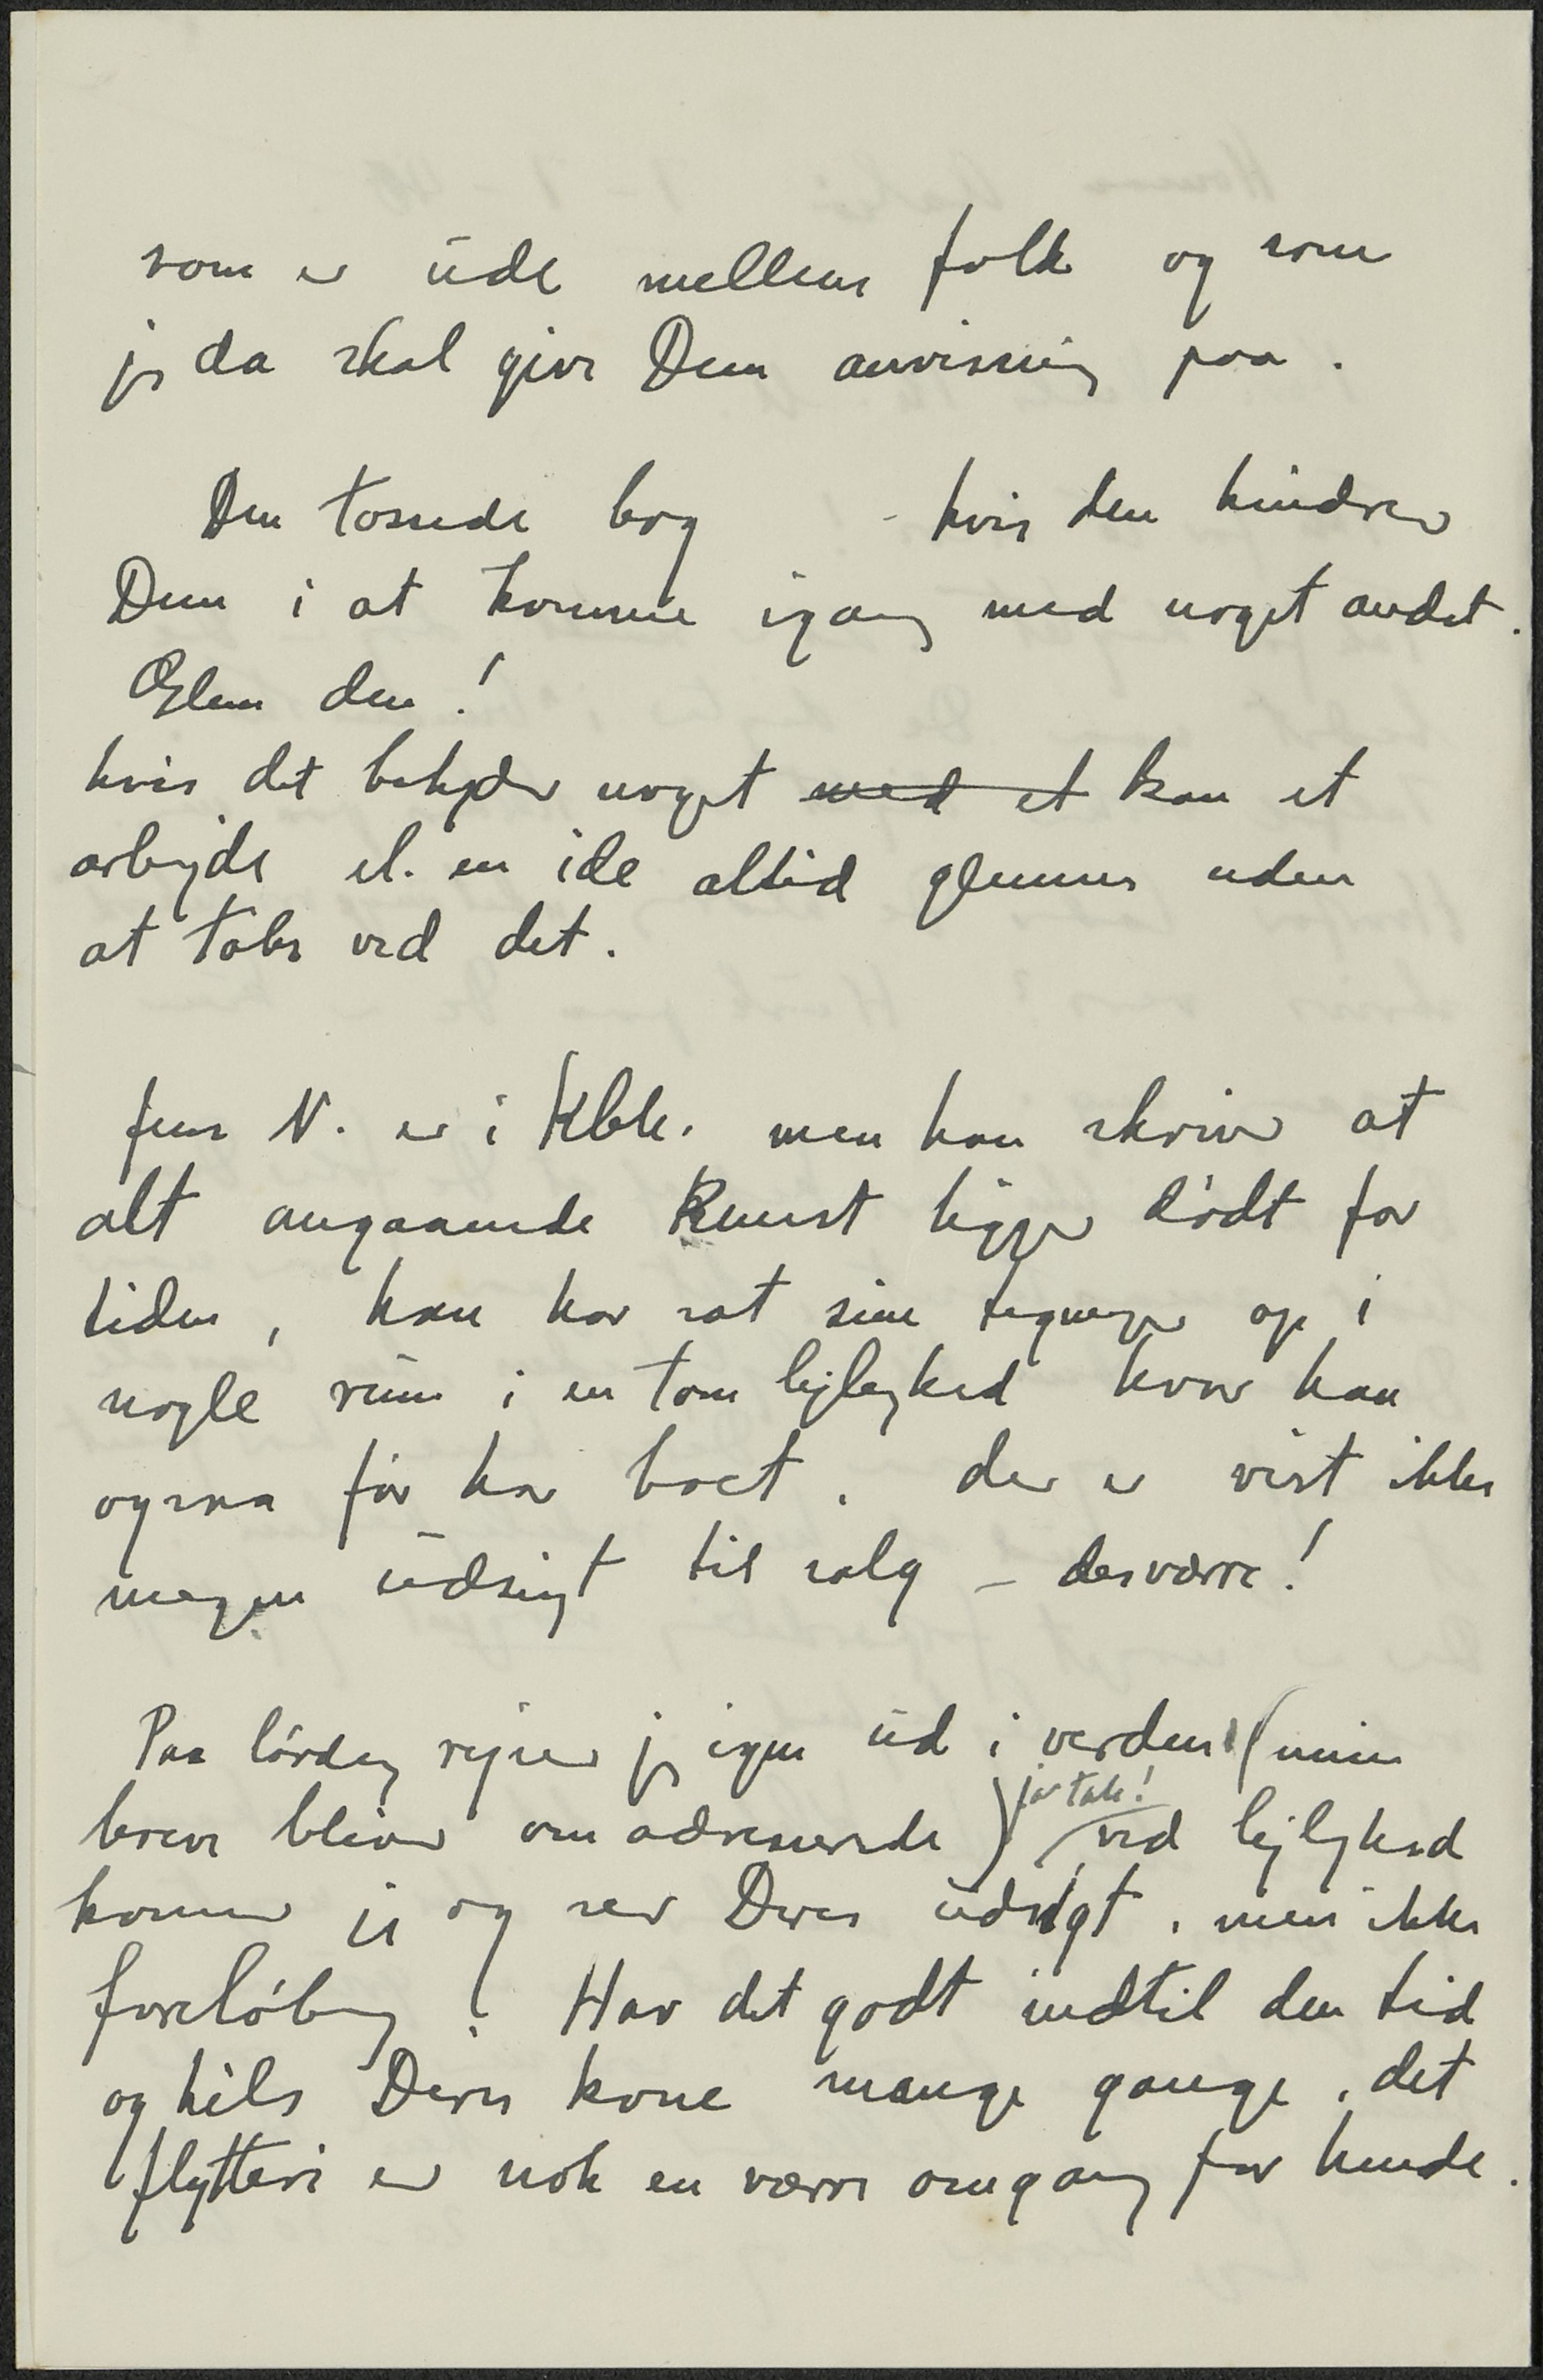 som er ude mellem folk og som
jeg da skal give Dem anvisning paa.
Den tossede bog - hvis den hindrer
Dem i at komme igang med noget andet.
Glem den!
hvis det betyder noget med et kan et
arbejde el. en ide altid glemmes uden
at tabes ved det.
Jens N. er i Kbh. men han skriver at
alt angaaende Kunst ligger dødt for
tiden, han har sat sine tegninger op i
nogle rum i en tom lejlighed hvor han
ogsaa før har boet. der er vist ikke
megen udsigt til salg - desværre!
Paa lørdag rejser jeg igen ud i verden (mine
ja tak!
breve bliver omadresserede) ved lejlighed
kommer jeg og ser Deres udsigt, men ikke
foreløbig. Hav det godt indtil den tid
og hils Deres kone mange gange, det
flytteri er nok en værre omgang for hende.